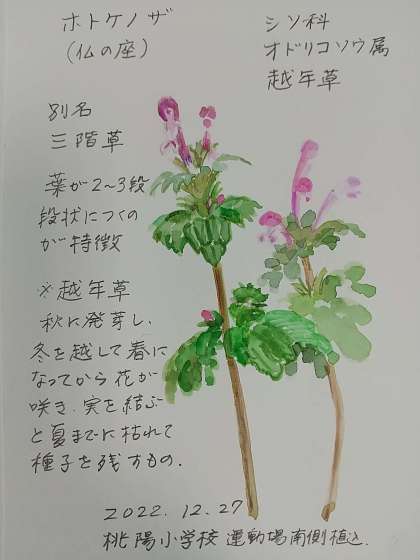 ホトケノザ
(仏の座)
シソ科
オドリコソウ属
越年草
別名
三階草
葉が2〜3段
段状につくの
が特徴
※越年草
秋に発芽し、
冬を越して春に
なってから花が
咲き、実を結ぶ
と夏までに枯れて
種子を残すもの.
2022.12.27
桃陽小学校 運動場南側植込.